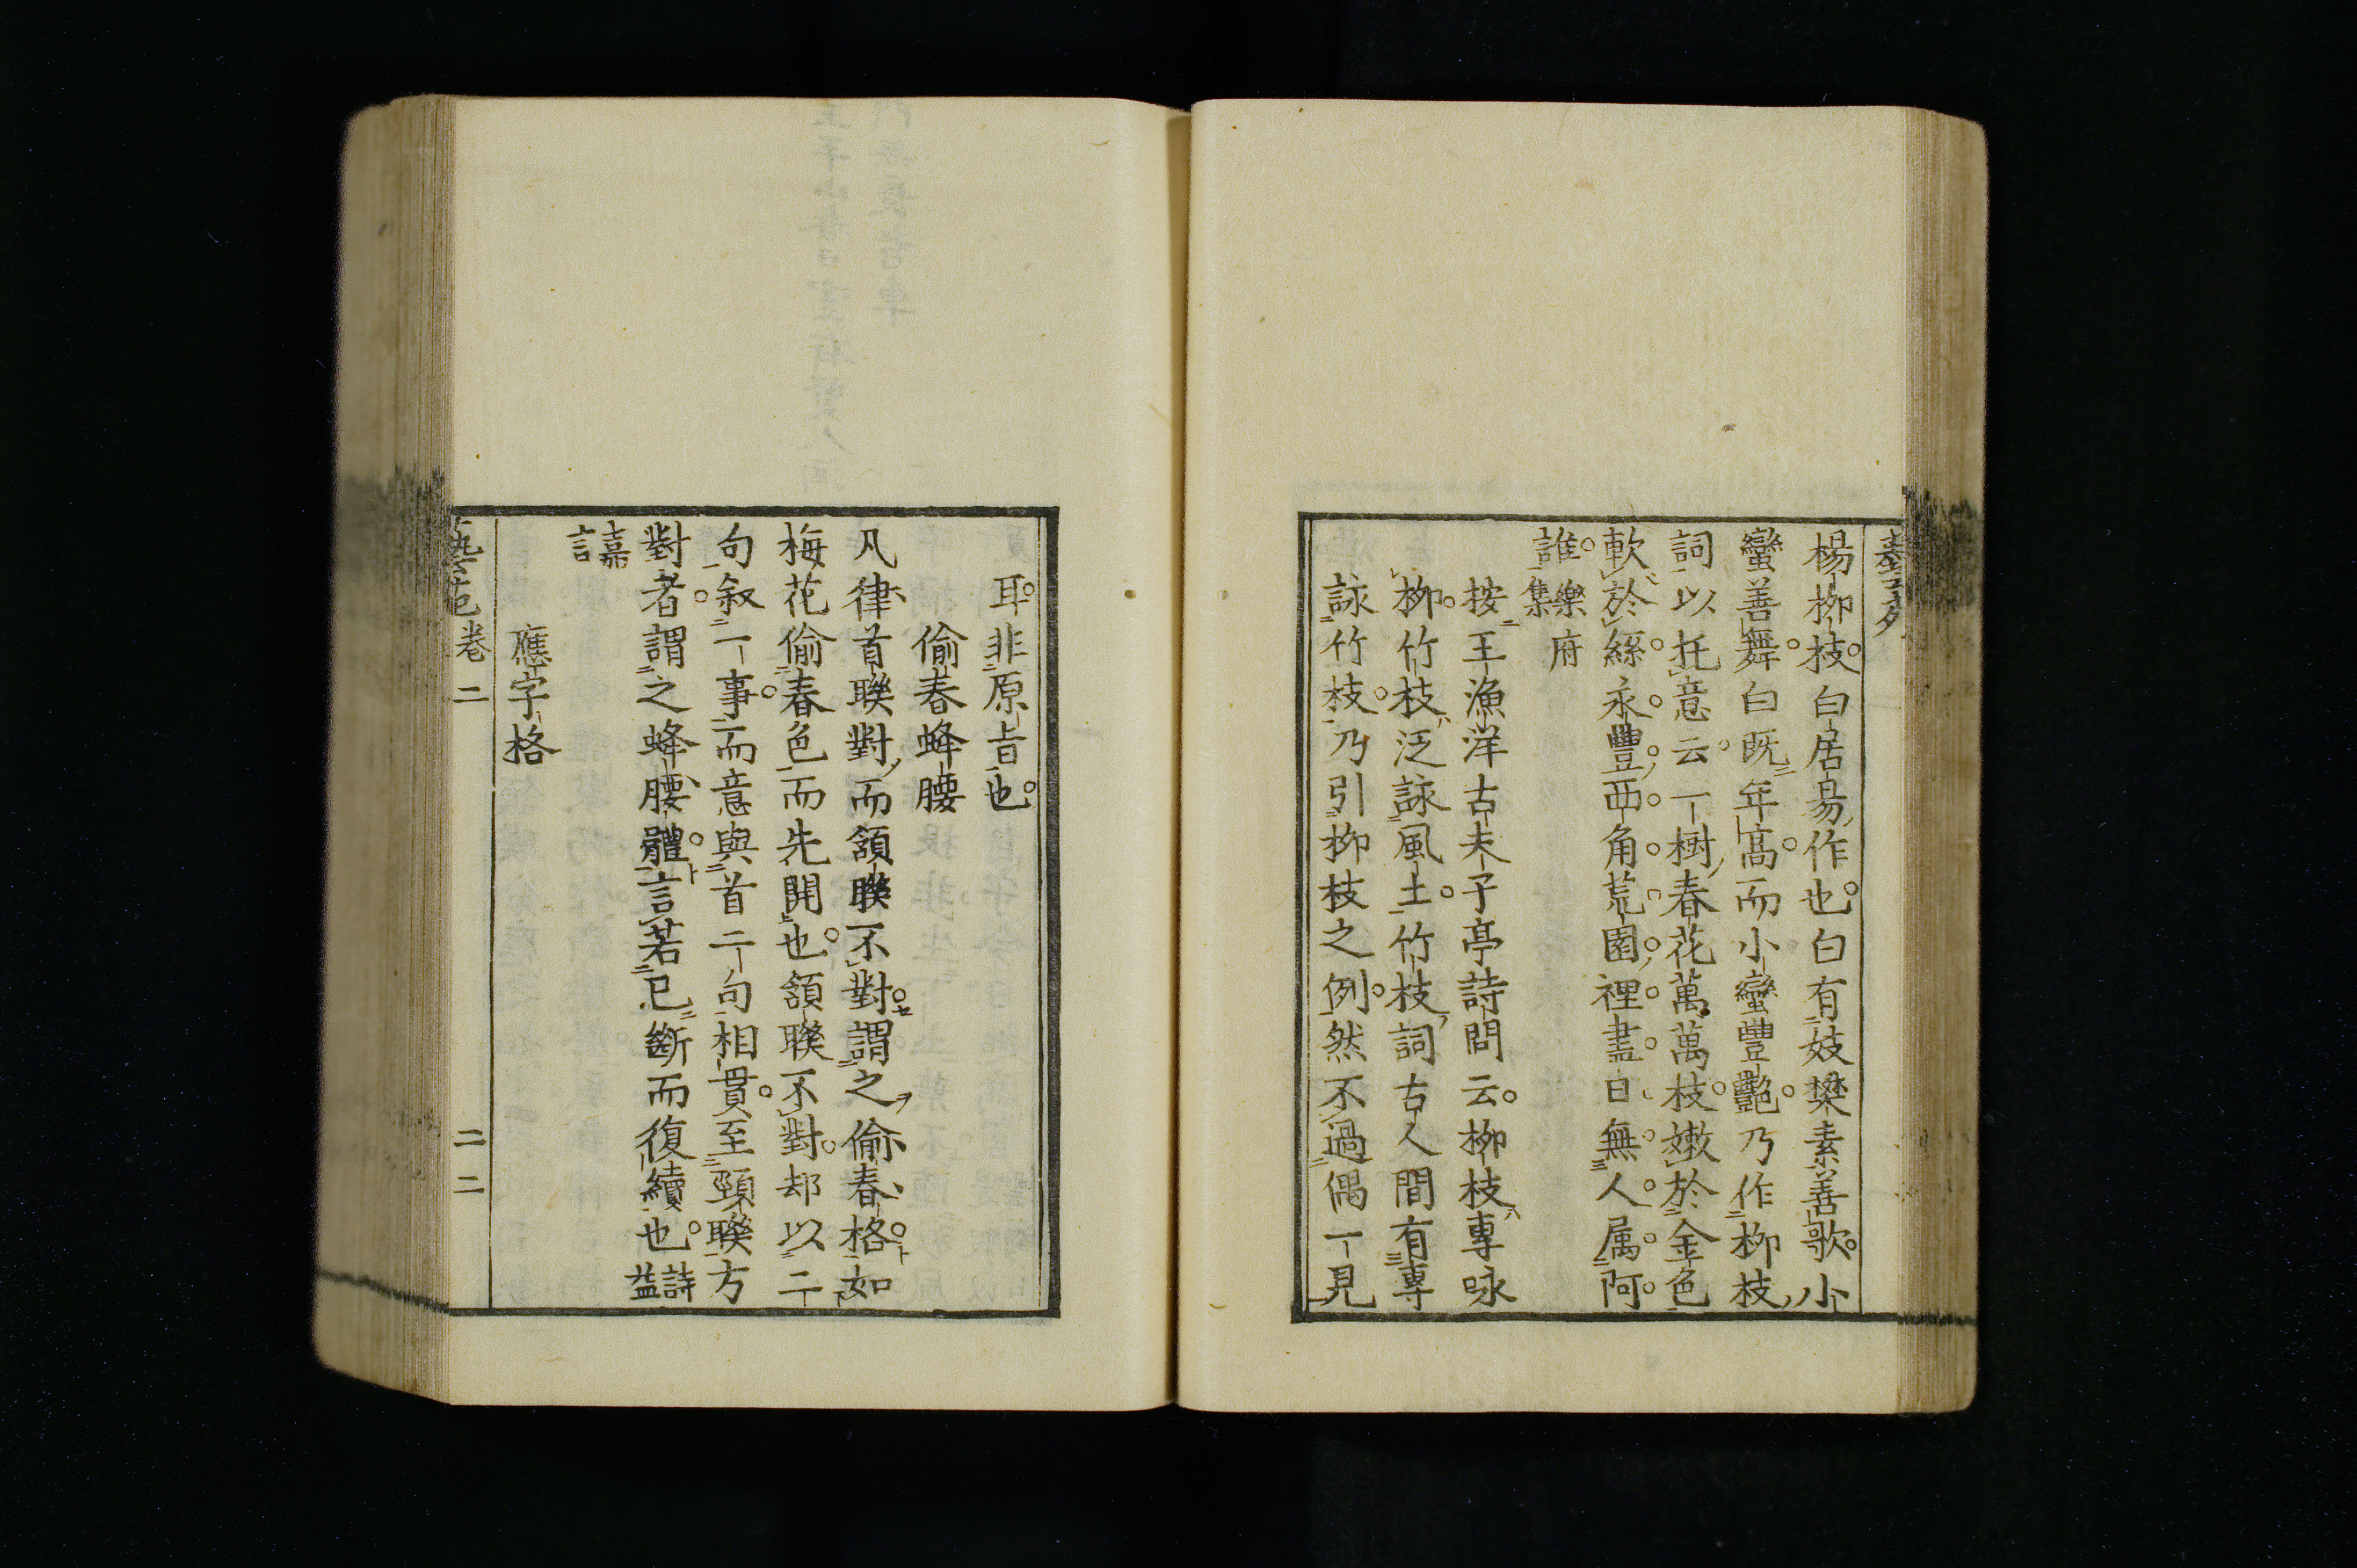 楊柳枝白居易作也白有妓樊素善歌小
蠻善舞白既年高而小蠻豐艷乃作柳枝
詞以托意云一樹春花萬萬枝嫩於金色
軟於絲永豐西角荒園裡盡日無人属阿
誰樂府集
按王漁洋古夫于亭詩問云柳枝專咏
柳竹枝泛詠風土竹枝詞古人間有專
詠竹枝乃引柳枝之例然不過偶一見
耳非原旨也
偷春蜂腰
凡律首聯對而頷聯不對謂之偷春格如
梅花偷春色而先開也頷聯不對却以二
句叙一事而意與首二句相貫至頸聯方
對者謂之蜂腰體言若已斷而復續也詩益
嘉言
應字格
藝苑卷二 二二